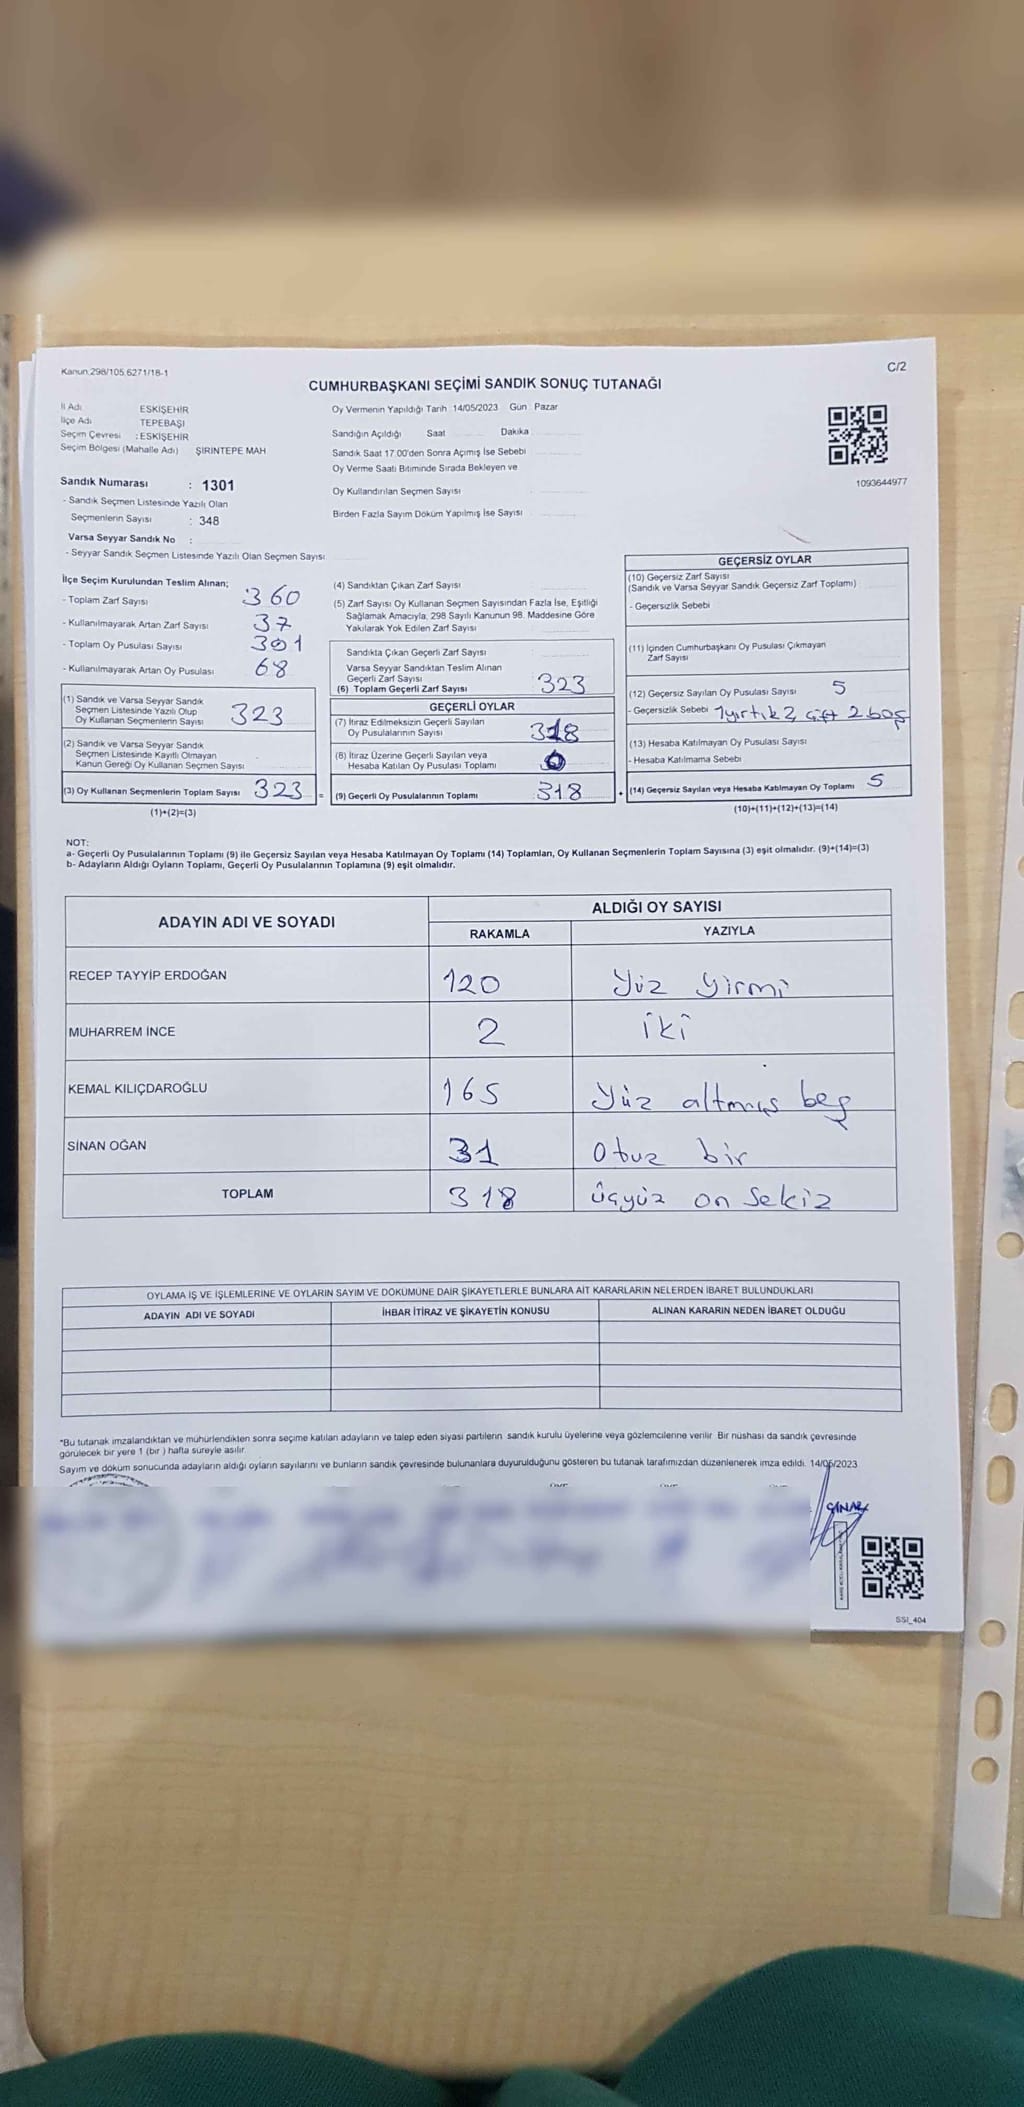 Kanun:298/105.6271/18-1
C/2
CUMHURBAŞKANI SEÇİMİ SANDIK SONUÇ TUTANAĞI
İl Adı ESKİŞEHİR
İlçe Adı TEPEBAŞI
Seçim Çevresi : ESKİŞEHİR
Seçim Bölgesi (Mahalle Adı) ŞİRİNTEPE MAH
Sandık Numarası : 1301
- Sandık Seçmen Listesinde Yazılı Olan
Seçmenlerin Sayısı : 348
Varsa Seyyar Sandık No :
- Seyyar Sandık Seçmen Listesinde Yazılı Olan Seçmen Sayısı
Oy Vermenin Yapıldığı Tarih 14/05/2023 Gün Pazar
Sandığın Açıldığı Saat Dakika
Sandık Saat 17.00'den Sonra Açımış İse Sebebi
Oy Verme Saati Bitiminde Sırada Bekleyen ve
Oy Kullandırılan Seçmen Sayısı
Birden Fazla Sayım Döküm Yapılmış İse Sayısı
1093644977
İlçe Seçim Kurulundan Teslim Alınan;
- Toplam Zarf Sayısı 360
- Kullanılmayarak Artan Zarf Sayısı 37
- Toplam Oy Pusulası Sayısı
- Kullanılmayarak Artan Oy Pusulası 68
(1) Sandık ve Varsa Seyyar Sandık
Seçmen Listesinde Yazılı Olup
Oy Kullanan Seçmenlerin Sayısı 323
(2) Sandık ve Varsa Seyyar Sandık
Seçmen Listesinde Kayıtlı Olmayan
Kanun Gereği Oy Kullanan Seçmen Sayısı
(3) Oy Kullanan Seçmenlerin Toplam Sayısı 323 =
(1)+(2)=(3)
(4) Sandıktan Çıkan Zarf Sayısı
(5) Zarf Sayısı Oy Kullanan Seçmen Sayısından Fazla İse, Eşitliği
Sağlamak Amacıyla, 298 Sayılı Kanunun 98. Maddesine Göre
Yakılarak Yok Edilen Zarf Sayısı
Sandıkta Çıkan Geçerli Zarf Sayısı
Varsa Seyyar Sandıktan Teslim Alınan
Geçerli Zarf Sayısı
(6) Toplam Geçerli Zarf Sayısı 323
GEÇERLİ OYLAR
(7) İtiraz Edilmeksizin Geçerli Sayılan
Oy Pusulalarının Sayısı 318
(8) İtiraz Üzerine Geçerli Sayılan veya
Hesaba Katılan Oy Pusulası Toplamı 0
(9) Geçerli Oy Pusulalarının Toplamı 318 +
GEÇERSİZ OYLAR
(10) Geçersiz Zarf Sayısı
(Sandık ve Varsa Seyyar Sandık Geçersiz Zarf Toplamı)
- Geçersizlik Sebebi
(11) İçinden Cumhurbaşkanı Oy Pusulası Çıkmayan
Zarf Sayısı
(12) Geçersiz Sayılan Oy Pusulası Sayısı 5
- Geçersizlik Sebebi 1 yırtık 2 çift 2 boş
(13) Hesaba Katılmayan Oy Pusulası Sayısı
- Hesaba Katılmama Sebebi
(14) Geçersiz Sayılan veya Hesaba Katılmayan Oy Toplamı 5
(10)+(11)+(12)+(13)=(14)
NOT:
a- Geçerli Oy Pusulalarının Toplamı (9) ile Geçersiz Sayılan veya Hesaba Katılmayan Oy Toplamı (14) Toplamları, Oy Kullanan Seçmenlerin Toplam Sayısına (3) eşit olmalıdır. (9)+(14)=(3)
b- Adayların Aldığı Oyların Toplamı, Geçerli Oy Pusulalarının Toplamına (9) eşit olmalıdır.
ADAYIN ADI VE SOYADI ALDIĞI OY SAYISI
RAKAMLA YAZIYLA
RECEP TAYYİP ERDOĞAN 120 Yüz yirmi
MUHARREM İNCE 2 iki
KEMAL KILIÇDAROĞLU 165 Yüz altmış beş
SİNAN OĞAN 31 Otuz bir
TOPLAM 318 üçyüz on sekiz
OYLAMA İŞ VE İŞLEMLERİNE VE OYLARIN SAYIM VE DÖKÜMÜNE DAİR ŞİKAYETLERLE BUNLARA AİT KARARLARIN NELERDEN İBARET BULUNDUKLARI
ADAYIN ADI VE SOYADI İHBAR İTİRAZ VE ŞİKAYETİN KONUSU ALINAN KARARIN NEDEN İBARET OLDUĞU
*Bu tutanak imzalandıktan ve mühürlendikten sonra seçime katılan adayların ve talep eden siyasi partilerin sandık kurulu üyelerine veya gözlemcilerine verilir. Bir nüshası da sandık çevresinde
görülecek bir yere 1 (bir ) hafta süreyle asılır.
Sayım ve döküm sonucunda adayların aldığı oyların sayılarını ve bunların sandık çevresinde bulunanlara duyurulduğunu gösteren bu tutanak tarafımızdan düzenlenerek imza edildi. 14/05/2023
ÇINAR
SSI_404